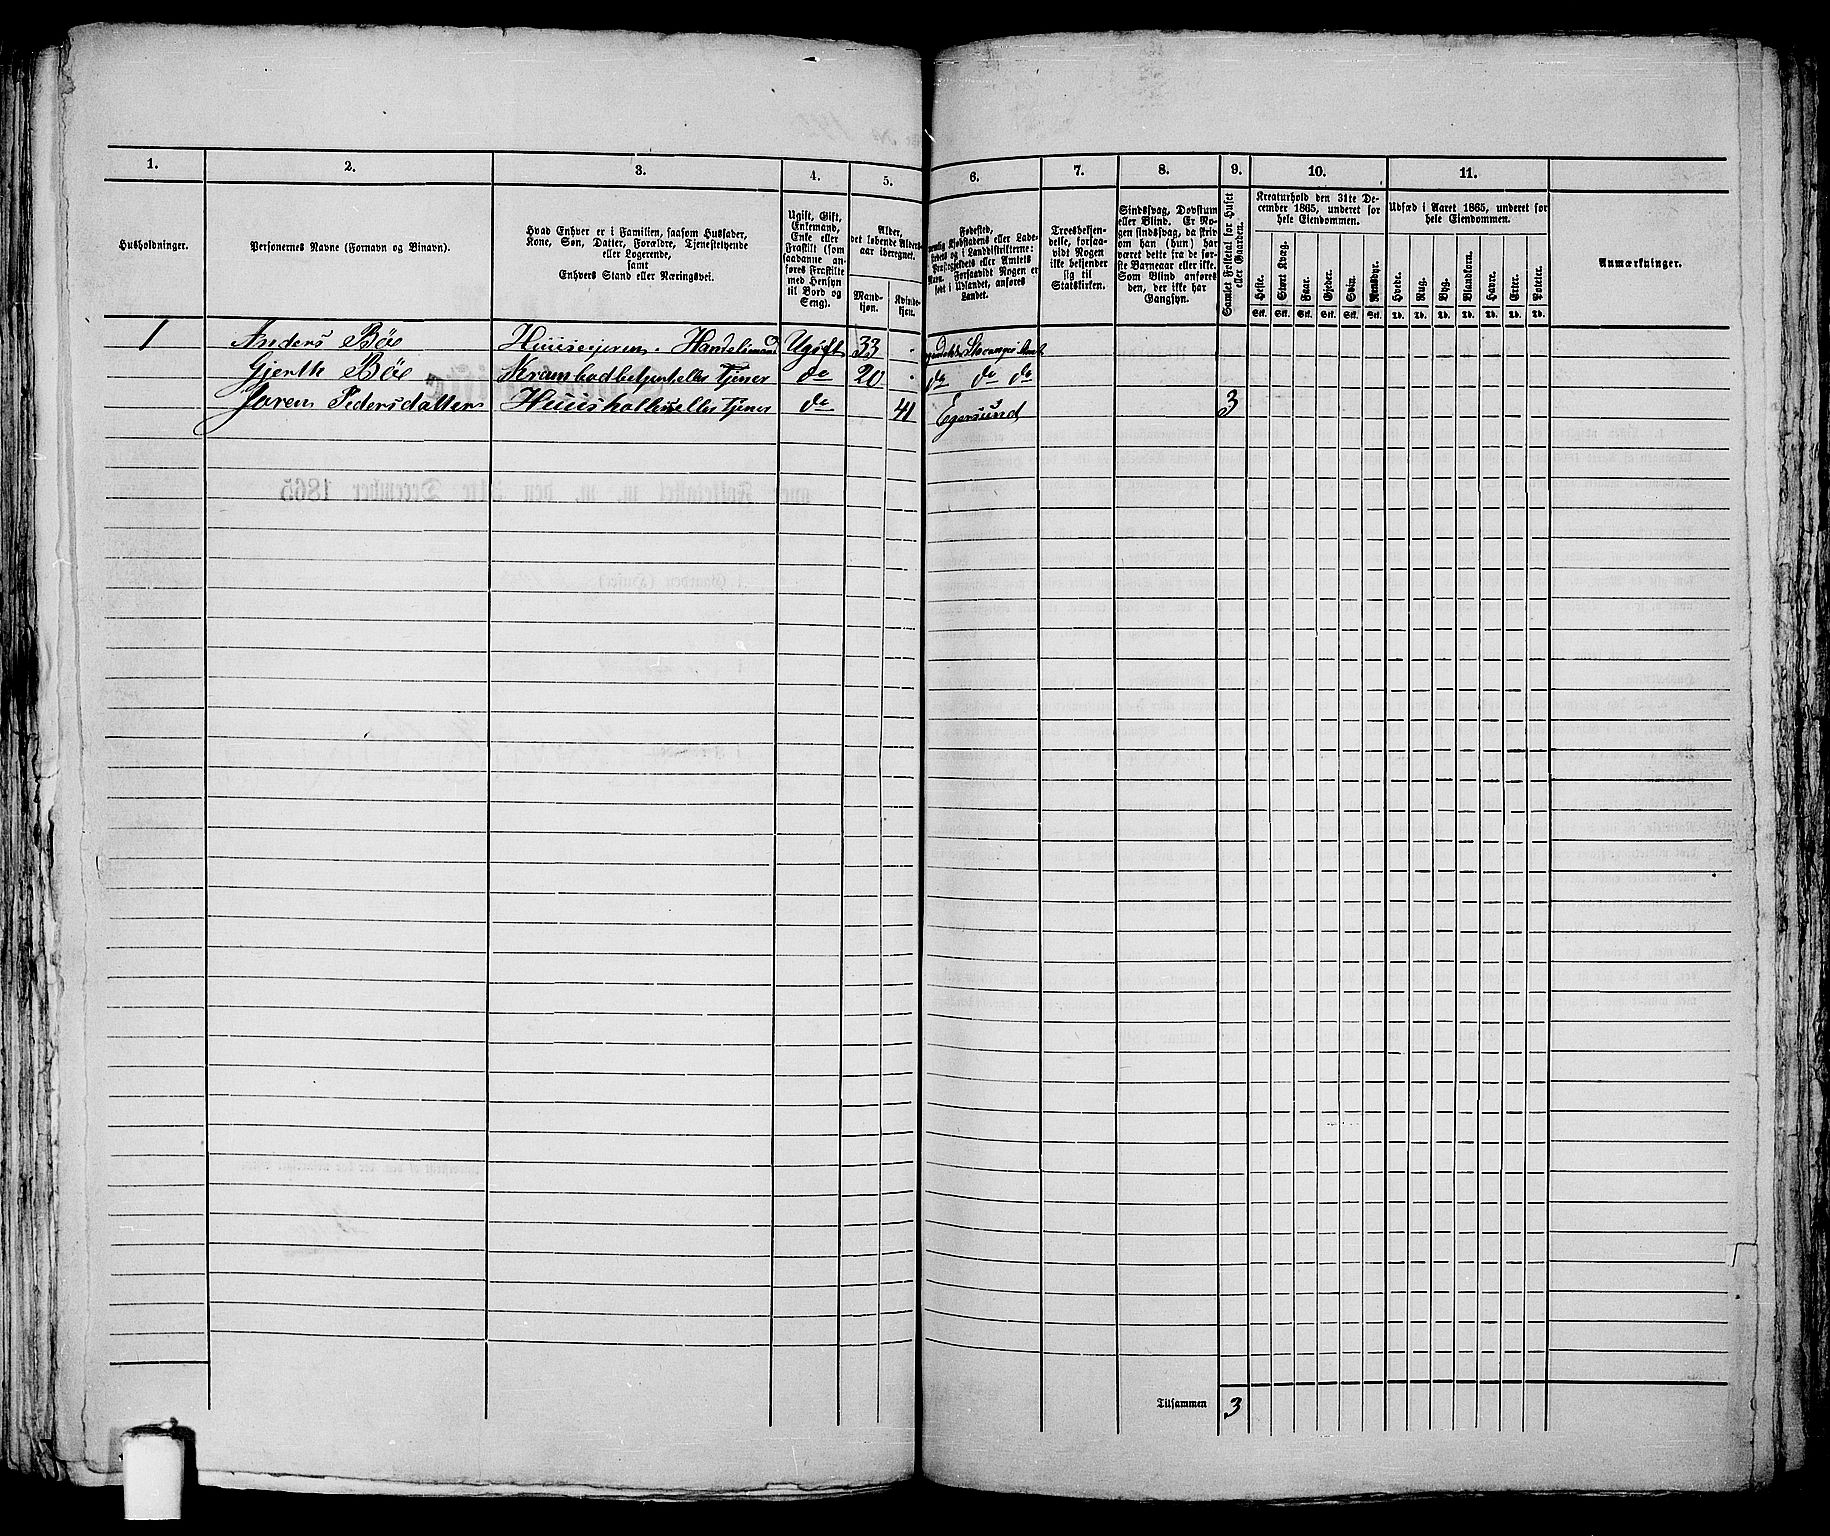 1. 2. 3. 4. 5. 6. 7. 8. 9. 10. 11.
Husholdninger.
Personernes Navne (Fornavn og Binavn).
Hvad Enhver er i Familien, saasom Husfader,
Kone, Søn, Datter, Forældre, Tjenestetyende
eller Logerende,
samt
Enhvers Stand eller Næringsvei.
Ugift, Gift,
Enkemand,
Enke eller
Fraskilt (som
saadanne an-
føres Fraskilte
med Hensyn
til Bord og
Seng).
Alder,
det løbende Alders-
aar iberegnet.
Mand-
kjøn.
Kvinde-
kjøn.
Fødested,
Kjøbstadens eller Lade-
stedets og i Landdistrikterne:
Præstegjeldets eller Amtets
Navn. Forsaavidt Nogen er
født i Udlandet, anføres
Landet.
Troesbekjen-
delse, forsaa-
vidt Nogen
ikke bekjender
sig til
Statskirken.
Sindssvag, Døvstum
eller Blind. Er No-
gen sindssvag, da skriv
om han (hun) har
været dette fra de før-
ste Barneaar eller ikke.
Som Blind anføres
den, der ikke har
Gangsyn.
Samlet Folketal for Huset
eller Gaarden.
Kreaturhold den 31te De-
cember 1865, underet for
hele Eiendommen.
Heste. Stort Kvæg. Faar. Gjeder. Svin. Rensdyr.
Stk. Stk. Stk. Stk. Stk. Stk.
Udsæd i Aaret 1865, underet for
hele Eiendommen.
Hvede. Rug. Byg. Blandkorn. Havre. Erter. Poteter.
Td. Td. Td. Td. Td. Td. Td.
Anmærkninger.
1 Anders Bøe Huuseieren. Handelsmand Ugift 33 Stavanger Amt
Gjerth Bøe Krambodbetjent eller Tjener do 20 do do do
Joren Pedersdatter Huusholder eller Tjener do 41 Egersund 3
Tilsammen 3